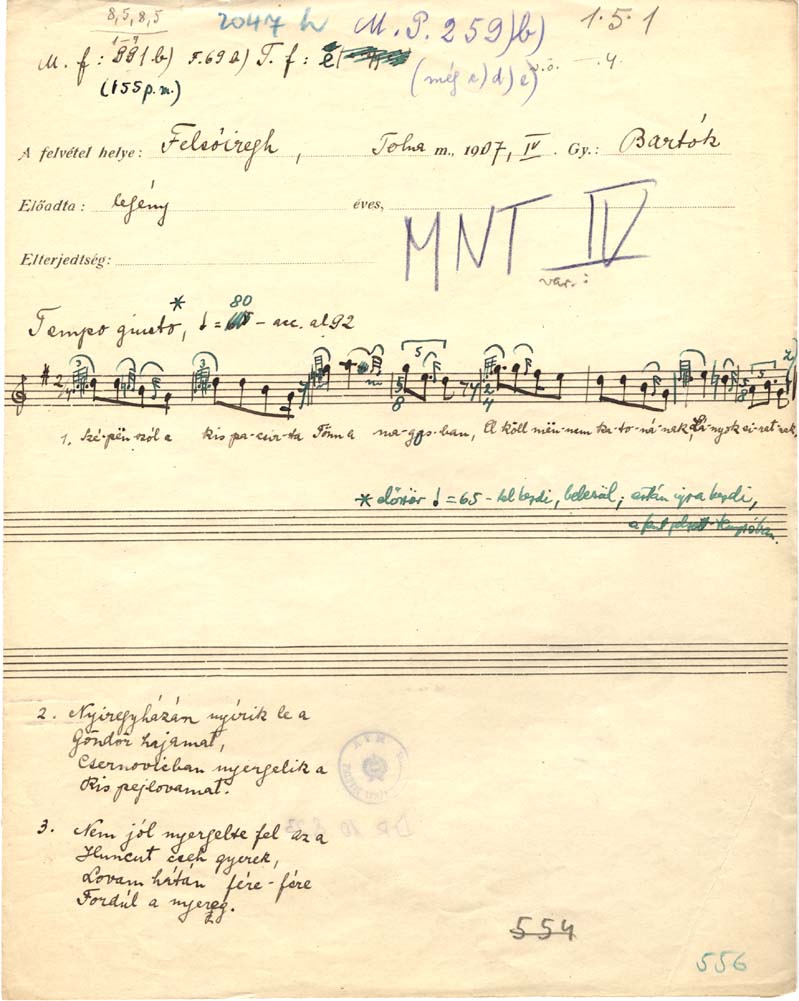 8,5,8,5
1-7
2047 h
M. P. 259)b)
1.5.1
M. f: 991 b) F.69 a) T. f: e(
(155 p. m.)
(még c) d) e)
v.ö. —. 4.
A felvétel helye: Felsőiregh, Tolna m., 1907, IV. Gy.: Bartók
Előadta: legény éves,
Elterjedtség:
MNT IV
var.:
* 80
Tempo giusto, = – acc. al 92
3 3 5 5
2/4 5/8 2/4 5/8
1. Szé-pën szól a kis pa-csir-ta Fönn a ma-gas-ban, El köll mën-nem ka-to-ná-nak,
* először = 65-tel kezdi, belesül; aztán ujra kezdi,
a fent jelzett tempóban.
2. Nyiregyházán nyírik le a
Göndör hajamat,
Csernovicban nyergelik a
Kis pejlovamat.
3. Nem jól nyergelte fel az a
Huncut cseh gyerek,
Lovam hátán fére-fére
Fordúl a nyereg.
554
556